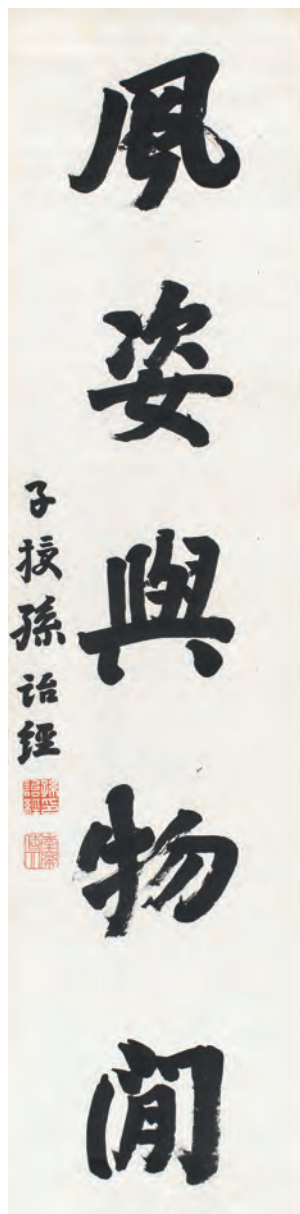 風姿與物閒
子授孫詒經